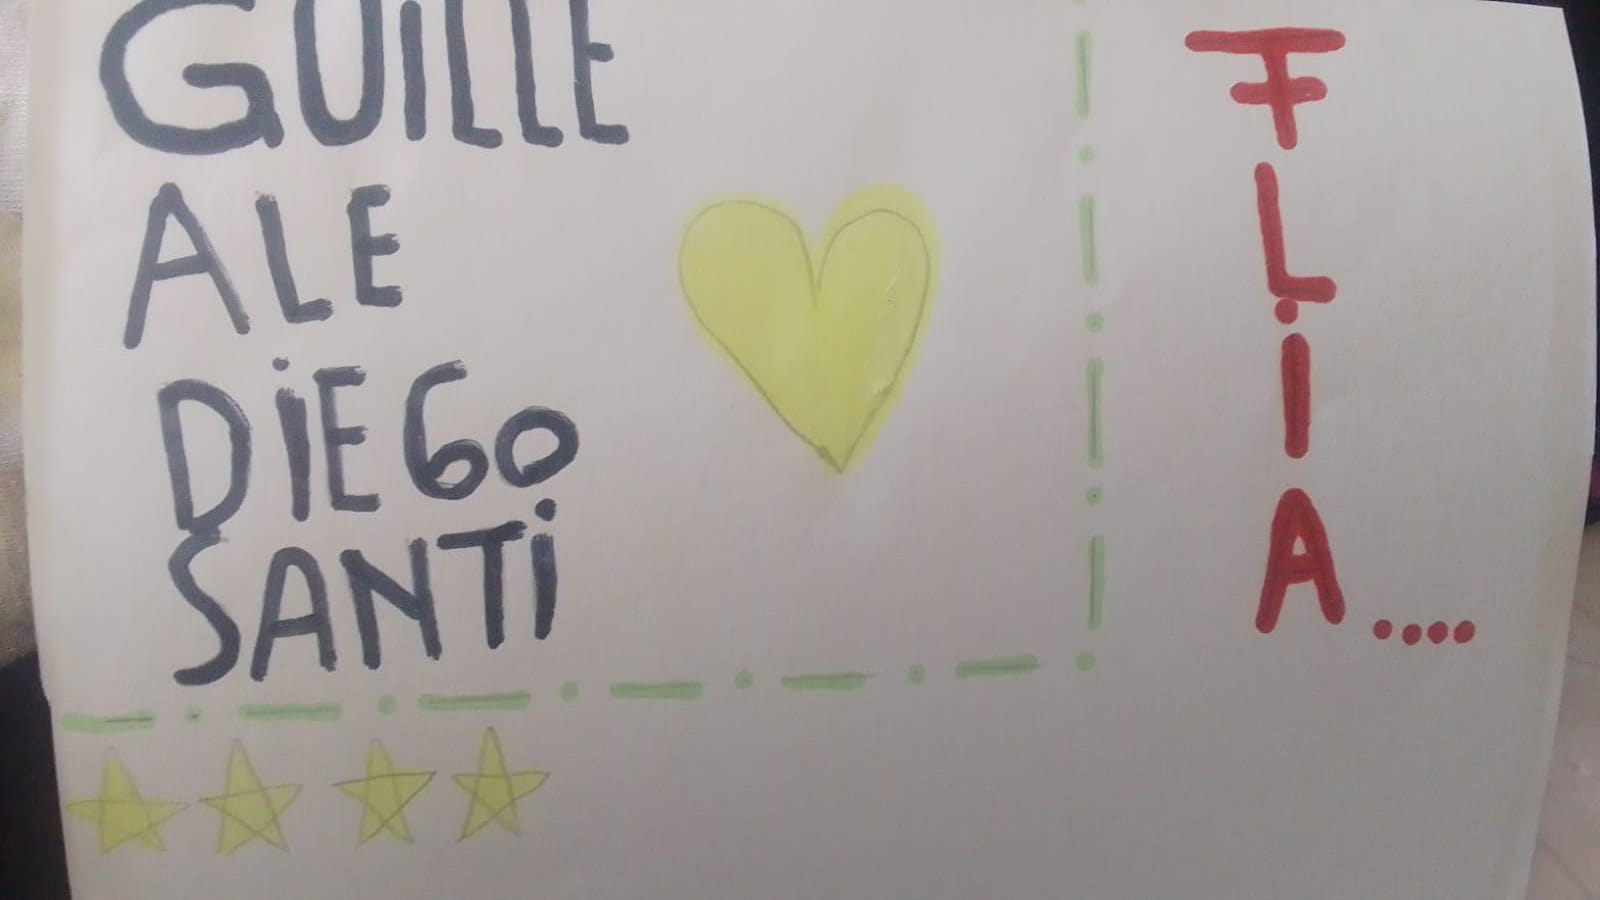 GUiLLE
ALE
DiEGO
SANTi
FLIA....